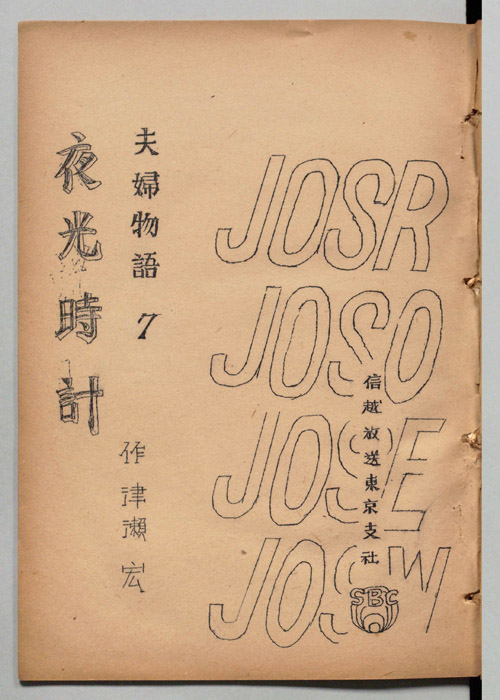 JOSR
JOSO
JOSE
JOSW
信越放送東京支社
SBC
夫婦物語 7
夜光時計
作 津瀬 宏